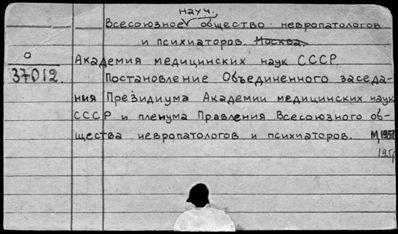 науч.
Всесоюзное общество невропатологов
и психиаторов. Москва.
Академия медицинских наук СССР.
О
37012.
Постановление Объединенного заседа-
ния Президиума Академии медицинских наук
СССР и пленума Правления Всесоюзного об-
щества невропатологов и психиаторов. М